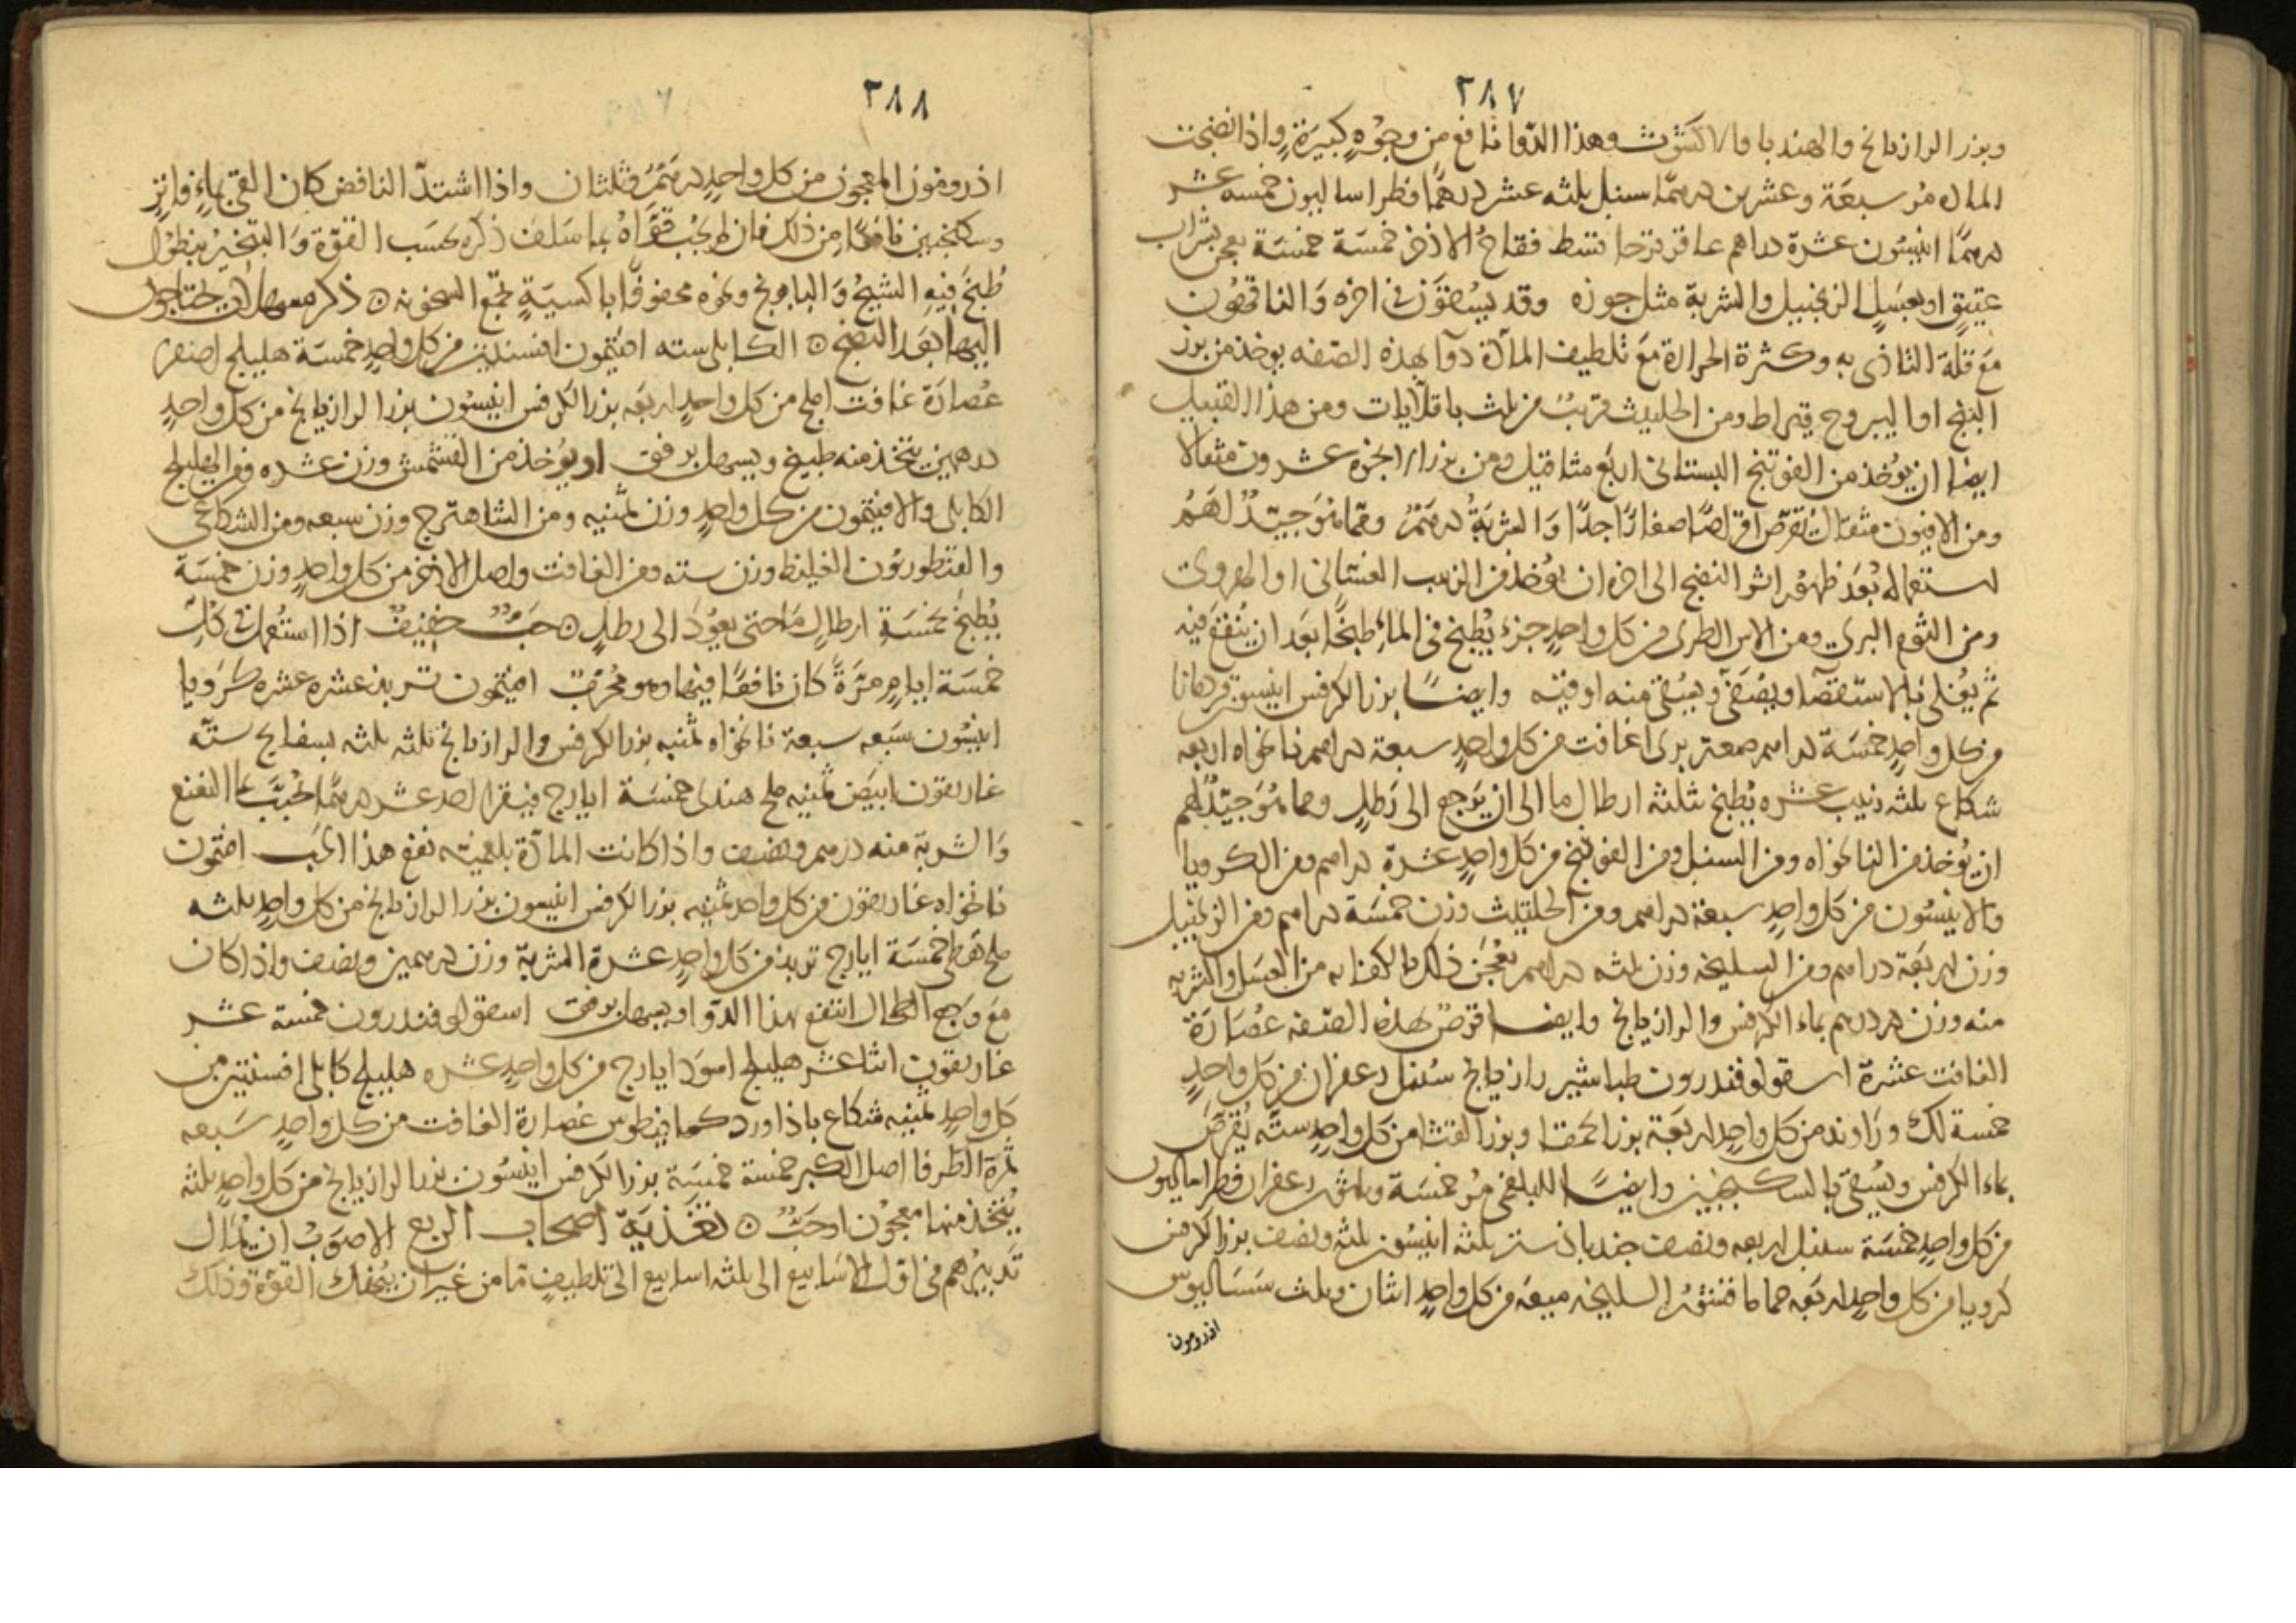 ٢٨٧
وبزر الرازيانج والهندبا والاكشوث وهذا الدوا نافع من وجوهٍ كبيرةٍ واذا نضجت
المادة مر سبعة وعشرين درهمًا سنبل ثلثه عشر درهمًا فطراساليون خمسه عشر
درهمًا انيسون عشرة دراهم عاقرقرحا قسط فقاح الاذخر خمسَة خمسَة يعجن بشراب
عتيقٍ او بعسَلٍ الزنجبيل والشربة مثل جوزه وقد يسْفوَن في اخره والناقهُون
مَع قلّة التاذى به وكثرة الحرارة مَع تلطيف المادّة دوآ بهذه الصّفه يوخذ من بزر
البنج او اليبروح قيراط ومن الحلتيت قريبٌ من ثلث باقلايات ومن هذا القبيل
ايضا ان يُوخذ من الفوتنج البستانى اربَع مثاقيل ومن بزر الانجرة عشرون مثقالا
ومن الافيون مثقالان يُقرّص اقراصًا صغارًا جدًا وَالشربَةُ درهَمٌ ومّما هُوَ جيّدٌ لهَمُ
استعماله بُعَد ظهُور اثر النضج الى اخره ان يُوخذ من الزبيب الغسّانى او الهروى
ومن الثوم البرى ومن الايرسا الطرى من كل واحِدٍ جزء يُطبخ فى الماءِ طبخًا بَعَد ان يُنقعَ فيه
ثم يُغلى بالاستقصآ ويصُفّى ويُسقى منه اوقيّه وايضًا بزر الكرفس انيسون قردمانا
من كل واحِدٍ خمسَة دراهم صعتر برى غافت من كل واحِدٍ سبعة دراهم نانخواه اربعه
شكاع ثلثه زبيب عشره يُطبخ بثلثه ارطال ما الى ان يَرجع الى رَطلٍ ومما هُوَ جيّدٌ لهم
ان يُوخذ من النانخواه ومن السنبل ومن الفوتنج من كل واحِدٍ عشرة دراهم ومن الكرويا
والانيسُون من كل واحِدٍ سبعة دراهم ومن الحلتيت وزن خمسَة دراهم ومن الزنجبيل
وزن اربَعة دراهم ومن السليخه وزن ثلثه دراهم يعْجَن ذلك بالكفايه من العسَل والشربه
منه وزن درهم بماء الكرفس والرازيانج وايضا قرصٌ بهذه الصّفه عصَارَة
الغافت عشرة اسقولوفندرون طباشير رازيانج سُنبل زعفران من كل واحِدٍ
خمسة لك ورَاوند من كل واحِدٍ اربعَة بزر الحمقا وبزر القثا من كل واحِدٍ ستّه يُقرّصَ
بماء الكرفس ويُسقى بالسكنجبين وايضًا للبلغمى مُر خمسَة وثلث زعفران فطراساليون
من كل واحِدٍ خمسَة سنبل اربعه ونصف جندبادستر ثلثه انيسُون ثلثه ونصف بزر الكرفس
كرويا من كل واحِدٍ اربَعه حماما فنتقر السليخه ميعَه من كل واحِدٍ اثنان وثلث سَسَاليوس
اذرومون
٢٨٨
اذرومون المعجون من كل واحِدٍ درهَمٌ وثلثان واذا اشتدّ النافض كان القى بماءٍ فاترٍ
وسكنجبين نافعًا من ذلك فان لم يجُب قرّاهُ بما سَلف ذكره بحسَب القوّة وَالتبخيرُ بنطوْل
طُبخَ فيهِ الشيحُ وَالبابونج ونحوه محفوفًا باكسيَةٍ تجمّع السخونه ○ ذكر مسهلات يحتاجون
اليهَا بَعَد النضج ○ الكابلى سته افتيمون افسنتين من كل واحِدٍ خمسَة هليلج اصفر
عُصارَة غافت املج من كل واحِدٍ اربَعه بزر الكرفس انيسُون بزر الرازيانج من كل واحِدٍ
درهمين يتّخذ منه طبيخ ويسهل برفق او يُوخذ من القشمش وزن عشره ومن الهليلج
الكابلى والافيتمون من كل واحِدٍ وزن ثمنيه ومن الشاهترج وزن سبعه ومن الشكاعى
والقنطوريُون الغليظ وزن سته ومن الغافت واصل الاذخر من كل واحِدٍ وزن خمسَة
يُطبخَ بخمسَةِ ارطالِ مَا حتى يعوُدَ الى رطلٍ ○ حَبٌّ خفيفٌ اذا استُعملَ فى كُلّ
خمسَة ايامٍ مرّةً كان نافعًا فيها وهو مُجرّبٌ افتيمون تربذ عشره عشره كرَويا
انيسُون سَبعه سبعة نانخواه ثمنيه بزر الكرفس والرازيانج ثلثه ثلثه بسفايج ستّه
غاريقون ابيَض ثمنيه ملح هندى خمسَة ايارج فيقرا احد عشر درهمًا يحُبَّب بماء النعنع
وَالشربة منه درهم ونصف واذا كانت المادّة بلغميّه نفع هذا الحَب افتمون
نانخواه غاريقون من كل واحد ثمنيه بزر الكرفس انيسون بزر الرازيانج من كل واحِدٍ ثلثه
ملح نفطى خمسَة ايارج تربذ من كل واحِدٍ عشرة الشربة وزن درهمين ونصف واذا كان
مَع وَجع الطحال انتفع بهذا الدّوا ويسهل برفق اسقولوفندرون خمسة عشر
غاريقون اثنا عشر هليلج اسوَد ايارج من كل واحِدٍ عشره هليلج كابلى افسنتين من
كل واحِدٍ ثمنيه شكاع باذاورد كمافيطوس عصارة الغافت من كل واحدٍ سَبعه
ثمرة الطرفا اصل الكبر خمسة خمسَة بزر الكرفس انيسُون بزر الرازيانج من كل واحدٍ ثلثه
يُتّخذ منها معجُون او حَبٌّ ○ تغذيَة اصحاب الربع الاصوَبُ ان يُمال
تَدبيرُهم فى اوّل الاسَابيع الى ثلثه اسابيع الى تلطيفٍ مّا من غير ان يُنهك القوّة وذلك